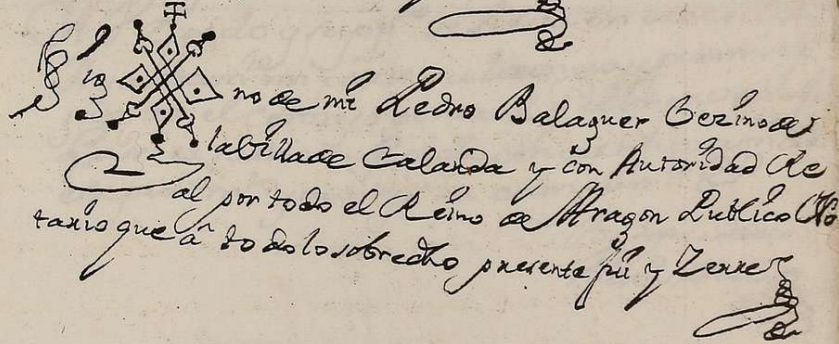 Sig no de mi Pedro Balaguer Vezino de
la Villa de Calanda y con Autoridad Re
al por todo el Reino de Aragon Publico No
tario que a todo lo sobredho presente fui y Zerre